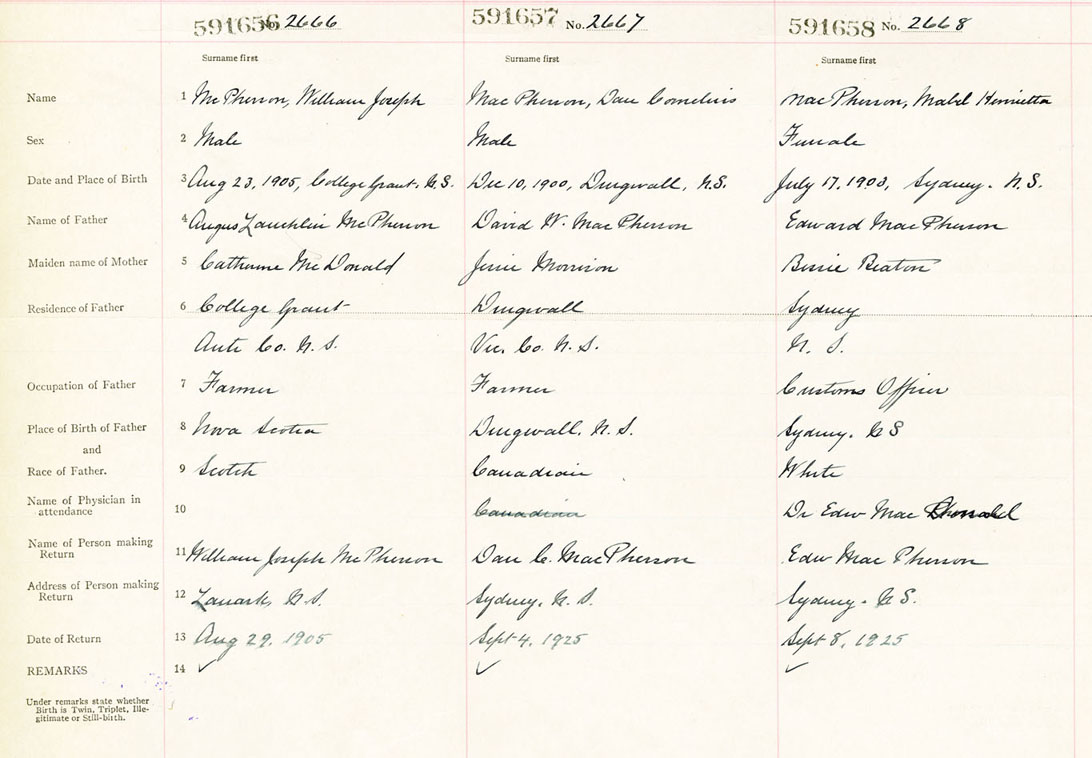 591656 No. 2666 591657 No. 2667 591658 No. 2668
Surname first Surname first Surname first
Name 1 McPherson, William Joseph MacPherson, Dan Cornelius MacPherson, Mabel Henrietta
Sex 2 Male Male Female
Date and Place of Birth 3 Aug 23, 1905, College Grant. N.S. Dec 10, 1900, Dingwall, N.S. July 17, 1903, Sydney. N.S.
Name of Father 4 Angus Lauchlin McPherson David W. MacPherson Edward MacPherson
Maiden name of Mother 5 Catherine McDonald Jessie Morrison Bessie Beaton
Residence of Father 6 College Grant Dingwall Sydney
Ante Co. N.S. Vic. Co. N.S. N. S.
Occupation of Father 7 Farmer Farmer Customs Officer
Place of Birth of Father 8 Nova Scotia Dingwall, N.S. Sydney. N S
and
Race of Father. 9 Scotch Canadian White
Name of Physician in
attendance 10 Canadian Dr Edw Mac
Name of Person making
Return 11 William Joseph McPherson Dan C. MacPherson Edw MacPherson
Address of Person making
Return 12 Lanark, N.S. Sydney, N.S. Sydney. N S.
Date of Return 13 Aug 29, 1905 Sept 4, 1925 Sept 8, 1925
REMARKS 14 ✓ ✓ ✓
Under remarks state whether
Birth is Twin, Triplet, Ille-
gitimate or Still-birth.